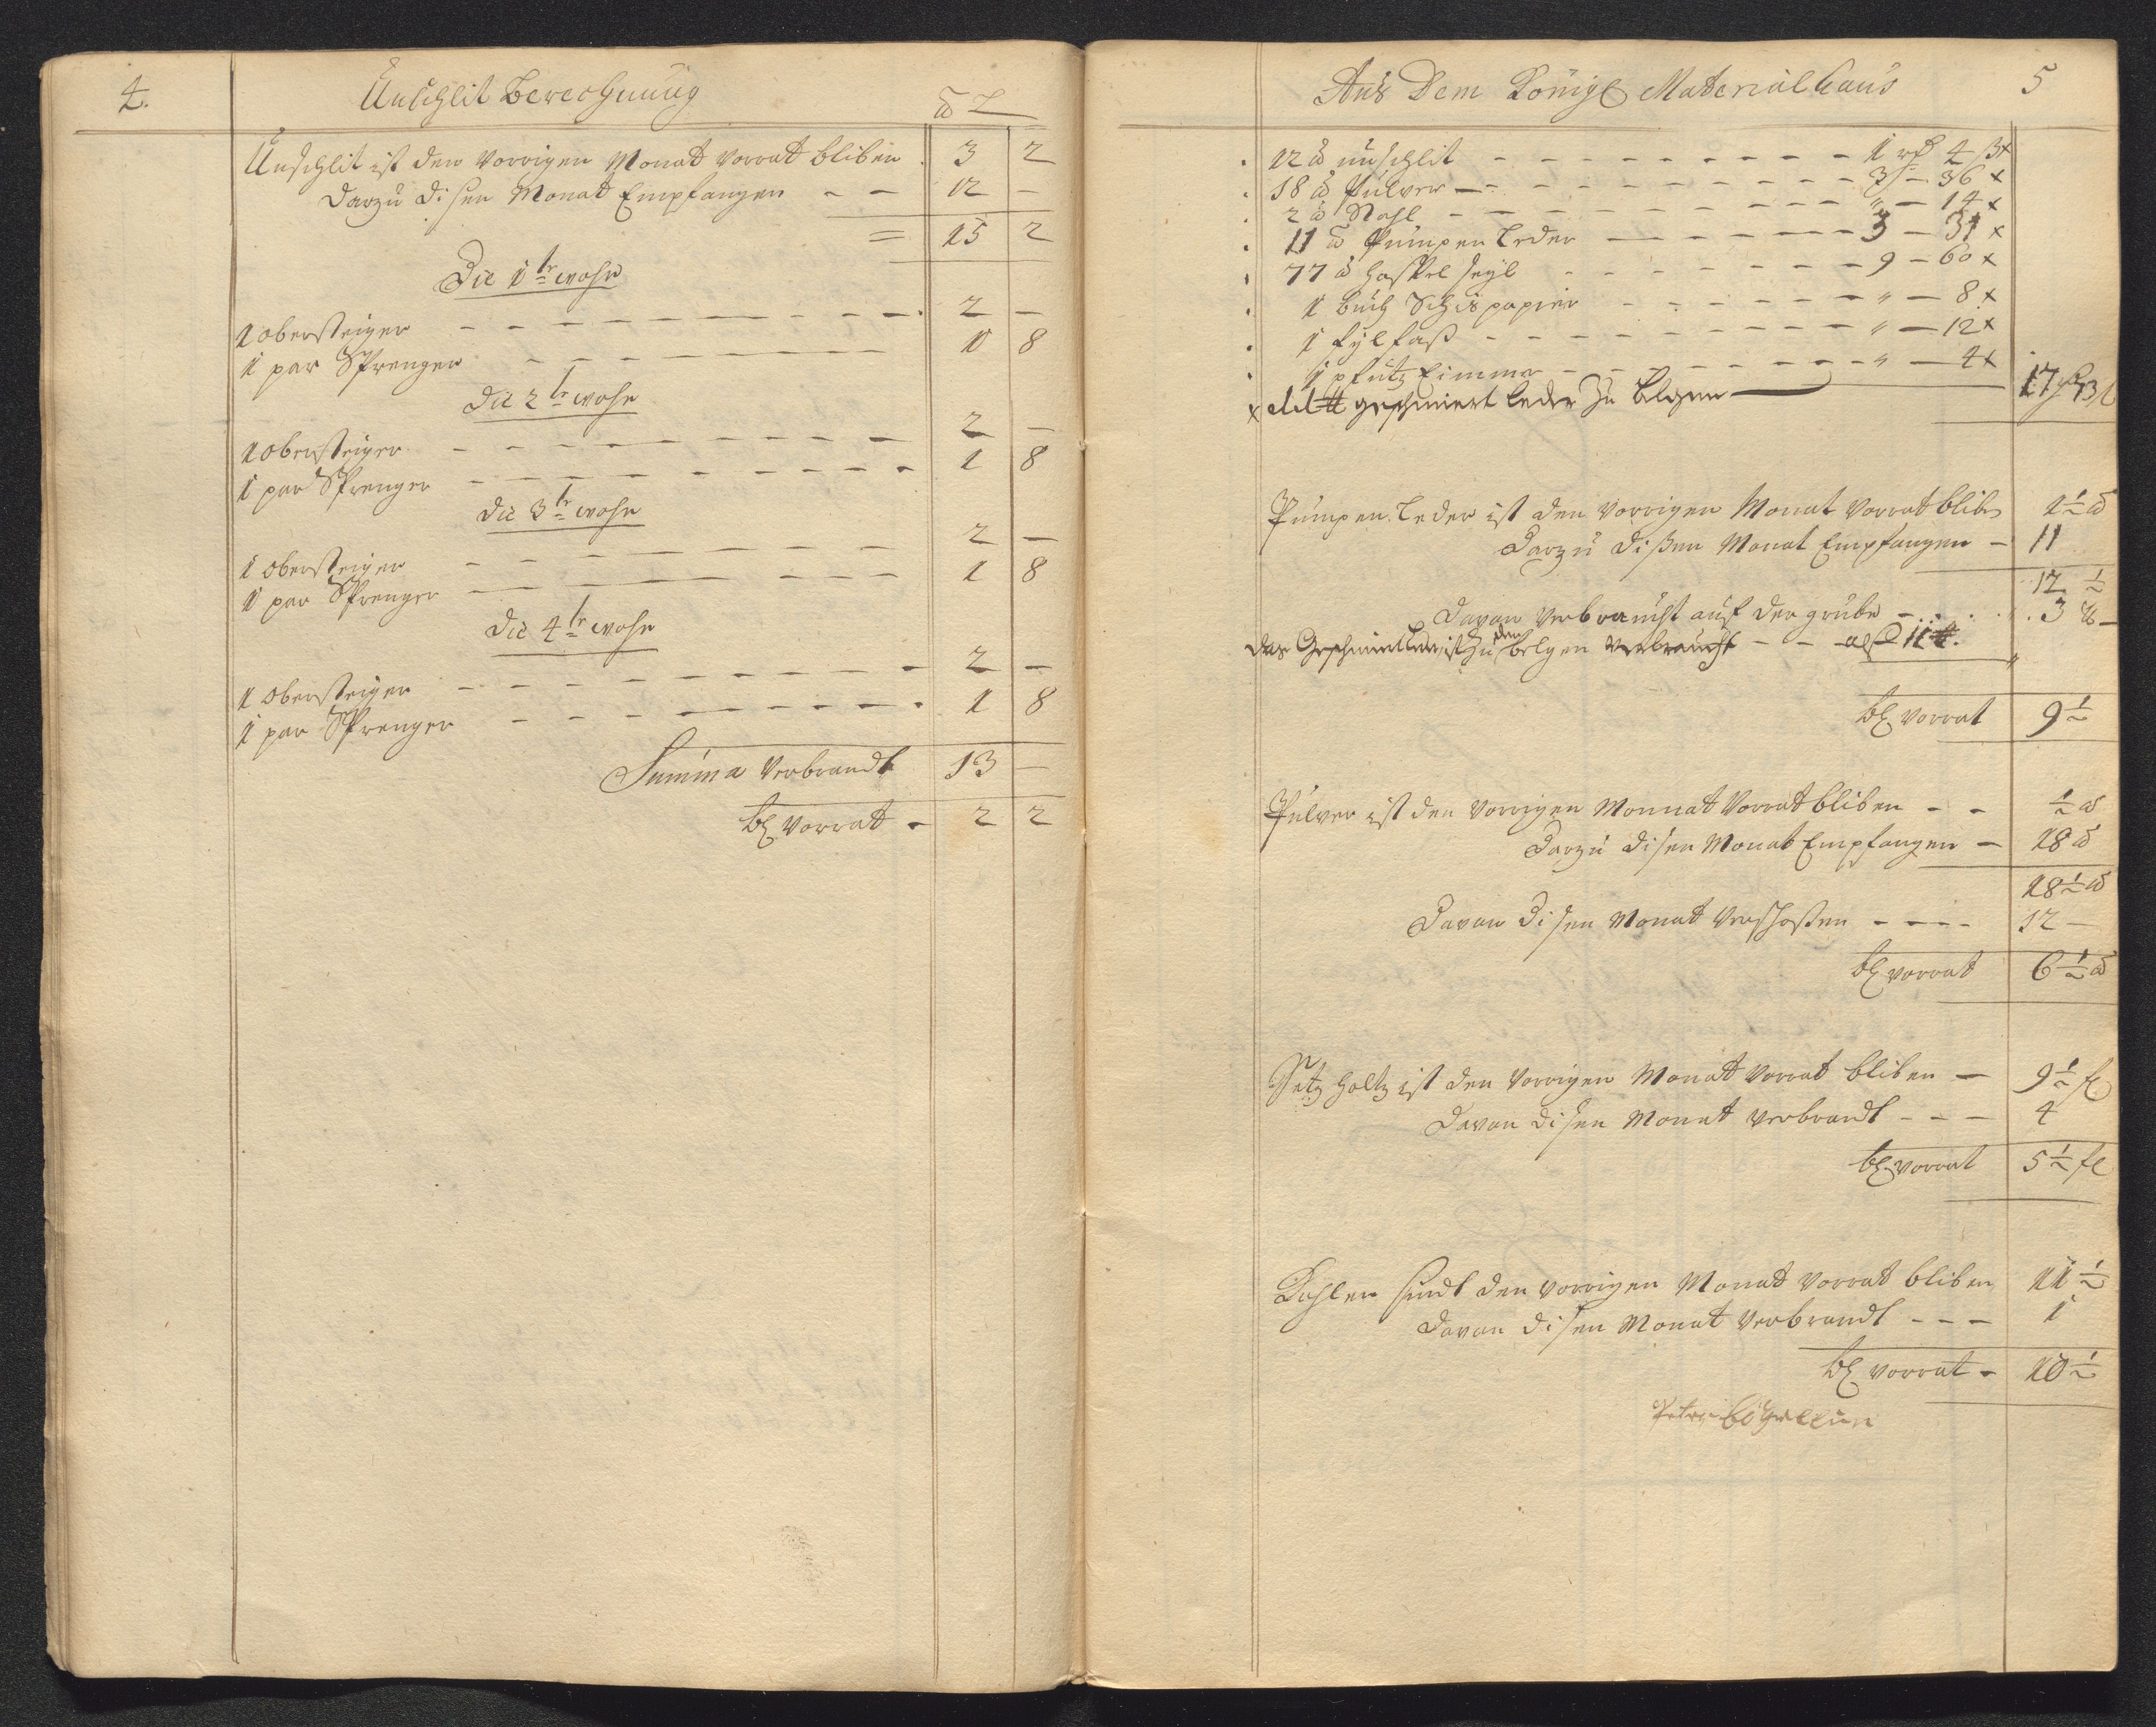 4.
Unschlit Berechnung
℔ L
Unschlit ist den vorrigen Monat vorrat bliben 3 2
Darzu disen Monat Empfangen - - 12 -
= 15 2
Die 1te woche
1 obersteiger - - - - - - - - - 2 -
1 par Sprenger - - - - - - - - 1 8
die 2te woche
1 obersteiger - - - - - - - - - 2 -
1 par Sprenger - - - - - - - - - 1 8
die 3te woche
1 obersteiger - - - - - - - - 2 -
1 par Sprenger - - - - - - - - 1 8
die 4te woche
1 obersteiger - - - - - - - - - 2 -
1 par Sprenger - - - - - - - - 1 8
Summa Verbrandt 13 -
bl vorrat - 2 2
Aus Dem Königl Material Haus 5
12 ℔ unschlit - - - - - - - - - 1 4
18 ℔ Pulver - - - - - - - - - 3 - 36 x
2 ℔ Stahl - - - - - - - - - " - 14 x
11 ℔ Pumpen Leder - - - - - - - 3 - 31 x
77 ℔ haspel seyl - - - - - - - 9 - 60 x
1 buch Schispapier - - - - - - " - 8 x
1 fylfaß - - - - - - - - " - 12 x
1 pfütz Eimmer - - - - - - - " - 4 x
x geschmiert leder zu belgen 17
Pumpen Leder ist den vorrigen Monat vorrat bliben 1½ ℔
Darzu dißen Monat Empfangen - 11
12 ½
Davon verbraucht auf der grube - . . . . 3 ℔ -
das geschmiert leder ist zu den belgen verbraucht - - 11 ℔.
bl vorrat 9½
Pulver ist den vorrigen Monnat vorrat bliben - - ½ ℔
Darzu disen Monat Empfangen - 18 ℔
18½ ℔
Davon disen Monat verschoßen - - - - 12 -
bl vorrat 6½ ℔
Setz holtz ist den vorrigen Monat vorrat bliben - 9½ fl
Davon disen Monat verbrandt - - - 4
bl vorrat 5½ fl
Kohlen sindt den vorrigen Monat vorrat bliben 11½
Davon disen Monat verbrandt - - - 1
bl vorrat - 10½